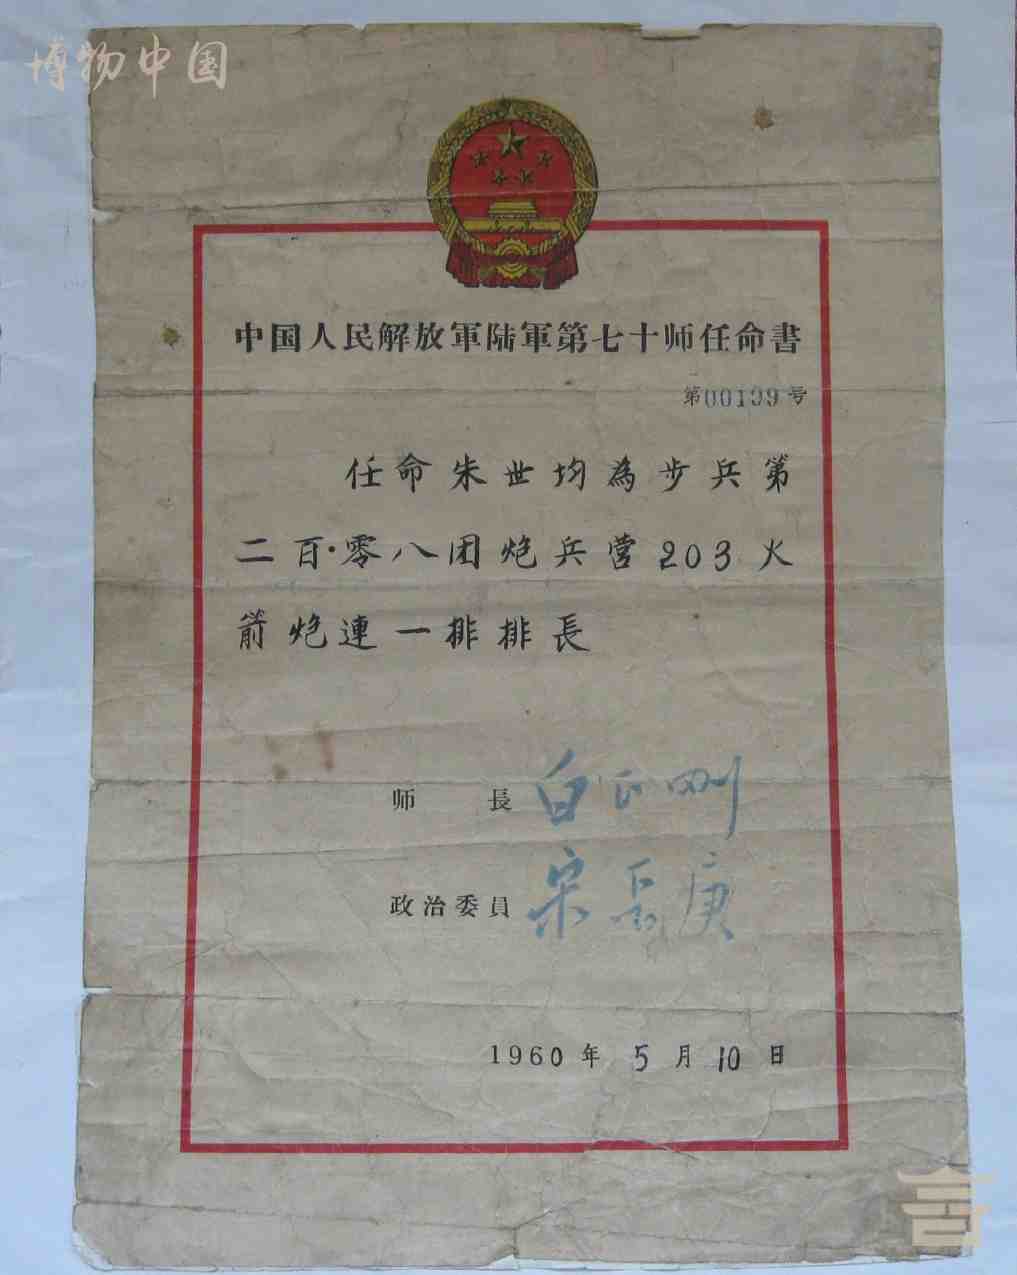 博物中国
中国人民解放軍陆軍第七十师任命書
第00199号
任命朱世均為步兵第
二百·零八团炮兵营203火
箭炮連一排排長
师 長 白正刚
政治委員 宋長庚
1960年 5月10日